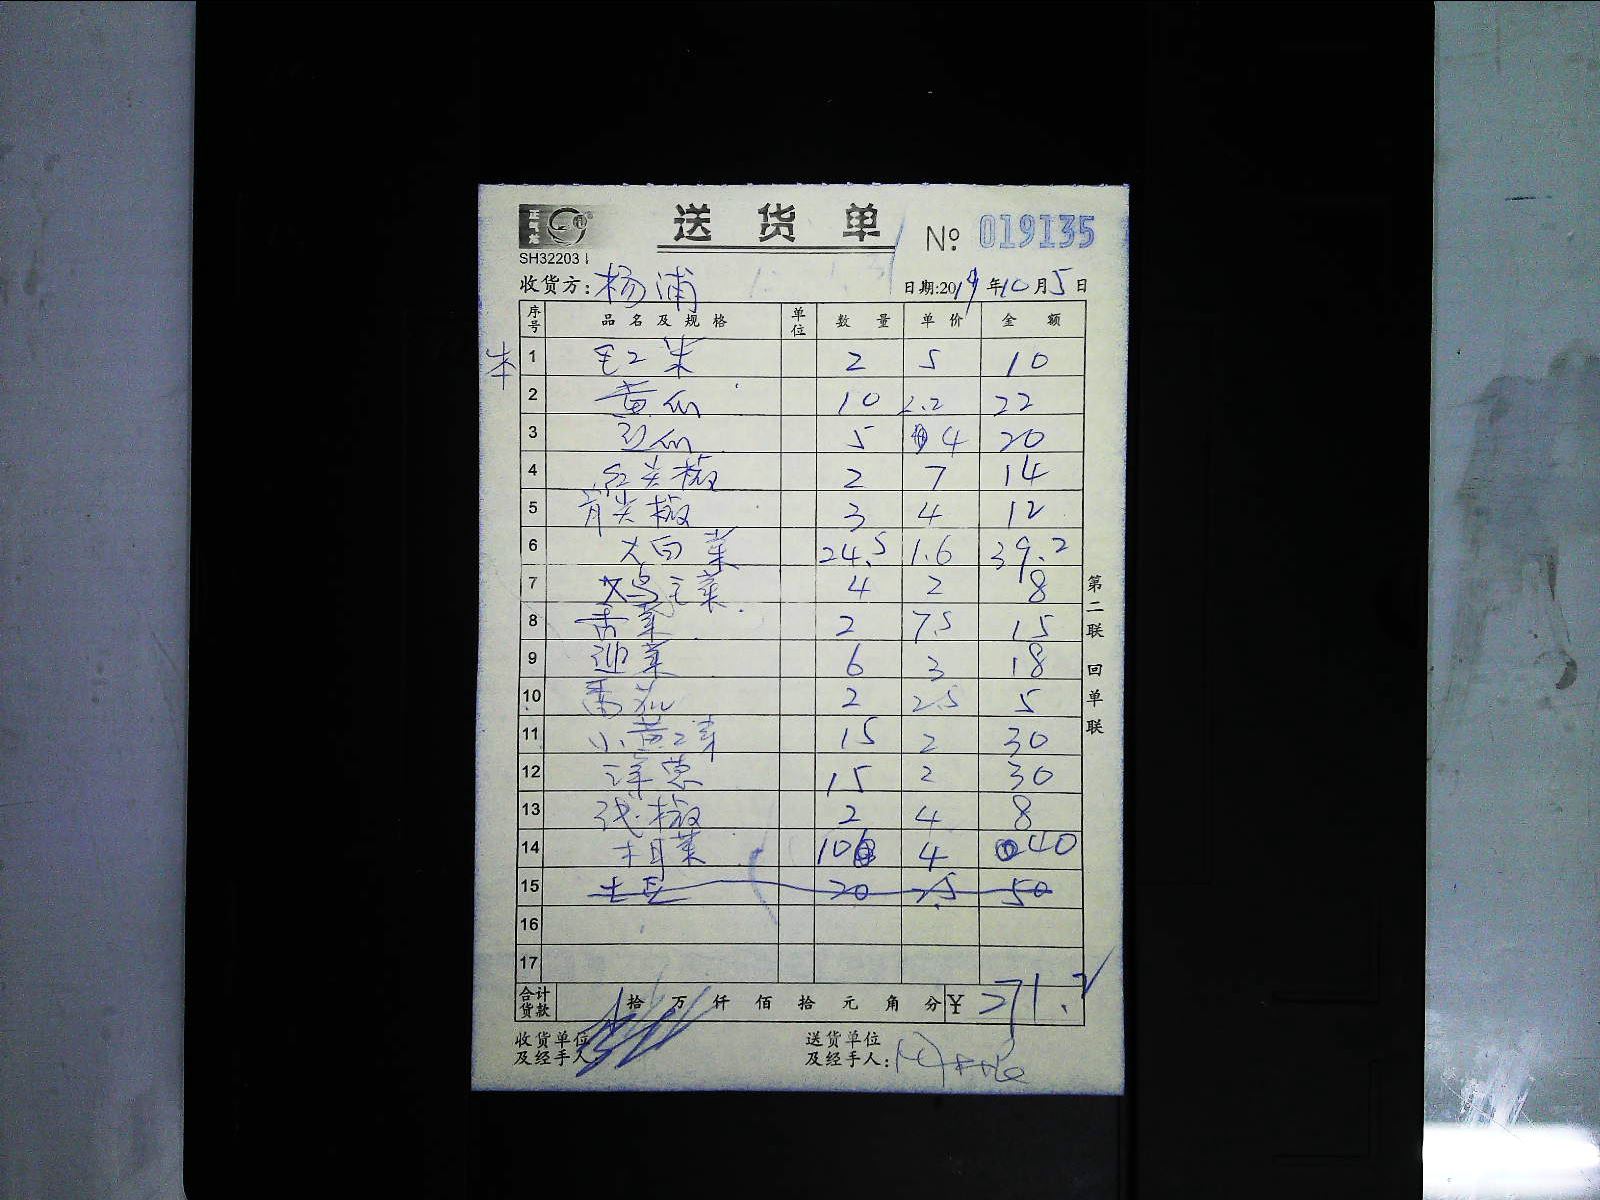 正气龙
送货单 № 019135
SH32203
收货方: 杨浦 日期:2019年10月5日
序号 品名及规格 单位 数量 单价 金额
本 1 2 5 10
2 黄瓜 10 2.2 22
3 5 4 20
4 红尖椒 2 7 14
5 青尖椒 3 4 12
6 大白菜 24.5 1.6 39.2
7 毛菜 4 2 8
8 菜 2 7.5 15
9 菜 6 3 18
10 番茄 2 2.5 5
11 小黄 15 2 30
12 洋葱 15 2 30
13 椒 2 4 8
14 菜 10 4 40
15 土豆 20 2.5 50
16
17
合计货款 拾万仟佰拾元角分 ¥ 271.2
收货单位及经手人: 送货单位及经手人:
第二联 回单联